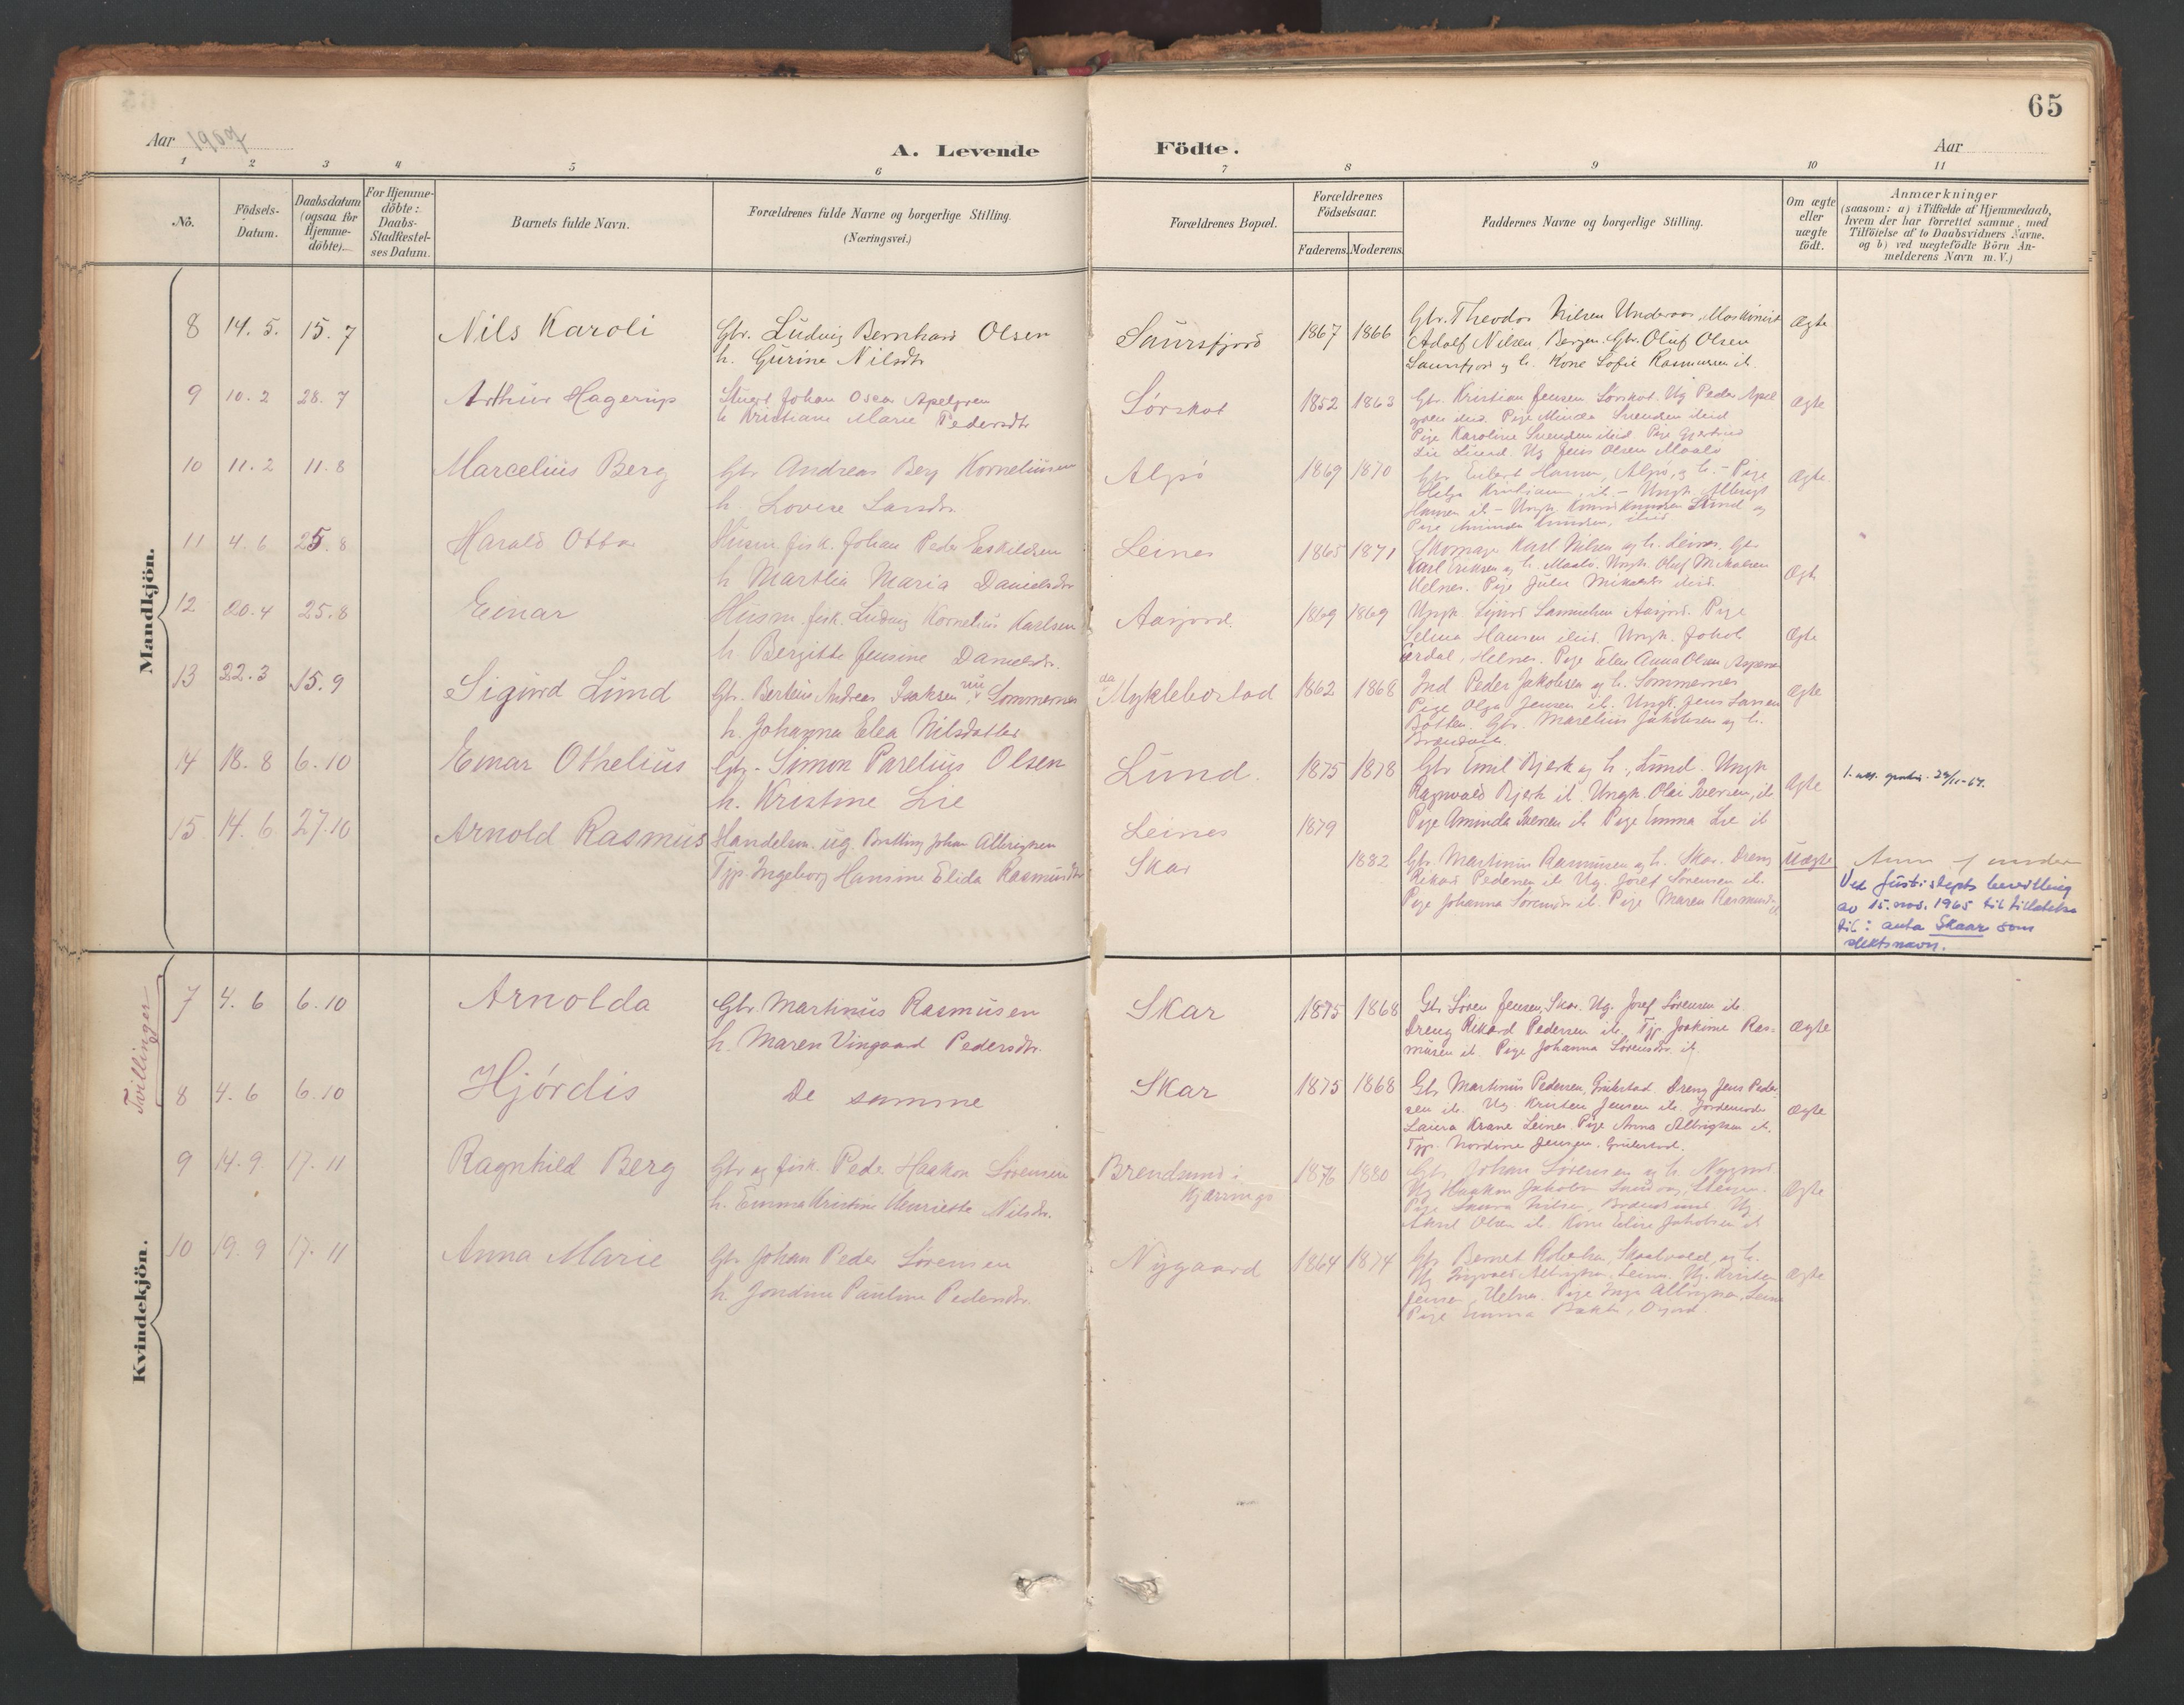 65
Aar 1907
A. Levende Födte.
Aar
1 2 3 4 5 6 7 8 9 10 11
No.
Födsels-
Datum.
Daabsdatum
(ogsaa for
Hjemme-
döbte).
For Hjemme-
döbte:
Daabs-
Stadfæstel-
ses Datum.
Barnets fulde Navn.
Forældrenes fulde Navne og borgerlige Stilling.
(Næringsvei.)
Forældrenes Bopæl.
Forældrenes
Födselsaar.
Faderens. Moderens.
Faddernes Navne og borgerlige Stilling.
Om ægte
eller
uægte
födt.
Anmærkninger
(saasom: a) i Tilfælde af Hjemmedaab,
hvem der har forrettet samme, med
Tilföielse af to Daabsvidners Navne.
og b) ved uægtefödte Börn An-
melderens Navn m. V.)
Mandkjön.
8 14. 5. 15. 7 Nils Karoli
Gbr. Ludvig Bernhard Olsen
h. Gurine Nilsdtr
Saursfjord 1867 1866
Gbr. Theodor Nilsen Underaas, Maskinist
Adolf Nilsen, Bergen. Gbr. Oluf Olsen
Saursfjord og h. Kone Sofie Rasmussen ib.
Ægte
9 10. 2 28. 7 Arthur Hagerup
Johan Oscar Apelgren
h Kristiane Marie Pedersdtr
Sørskot 1852 1863
Gbr. Kristian Jensen Sørskot. Ug Peder Apel
gren ibid. Pige Minda Svendsen ibid
Pige Karoline Svendsen ibid. Pige
Lie Lund. Ug Jens Olsen Maalø
Ægte
10 11. 2 11. 8 Marcelius Berg
Gbr Andreas Berg Korneliusen
h. Lovise Larsdtr
Alpø 1869 1870
Gbr Hansen, Alpø, og h. - Pige
Helga Kristiansen, ib. - Ungk. Albrigt
Hansen ib - Ungk. Knudsen Lund og
Pige Aminda Knudsen, ibid
Ægte
11 4. 6 25. 8 Harald Otto
Husm. fisk. Johan Peder Eskildsen
h Marthia Maria Danielsdtr
Leines 1865 1871
Skomager Karl Nilsen og h. Leines. Gbr
Karl Eriksen og h. Maalø. Ungk. Oluf Mikalsen
Helnes. Pige Julie Mikalsdtr ibid.
Ægte
12 20. 4 25. 8 Einar
Husm. fisk. Ludvig Kornelius Karlsen
h. Bergitte Jensine Danielsdtr.
Aasjord. 1869 1869
Ungk. Sigurd Samuelsen Aasjord. Pige
Selma Hansen ibid. Ungk. Jakob
Ørdal, Helnes. Pige Ellen Anna Olsen
Ægte
13 22. 3 15. 9 Sigurd Lund
Gbr. Berteus Andreas Isaksen nu Sommernes
h. Johanna Elea Nilsdatter
da Myklebostad 1862 1868
Ind Peder Jakobsen og h. Sommernes
Pige Olga Jensen ib. Ungk. Jens Larsen
Botten. Gbr. Marelius Jakobsen og h.
Ægte
14 18. 8 6. 10 Einar Othelius
Gbr. Simon Parelius Olsen
h. Kristine Lie
Lund. 1875 1878
Gbr Emil Bjerk og h., Lund. Ungk
Ragnvald Bjerk ib. Ungk. Olai Iversen, ib
Pige Aminda Iversen ib Pige Emma Lie ib
Ægte
15 14. 6. 27. 10 Arnold Rasmus
Handelsm. ug. Johan Albrigtsen
Tjp. Ingeborg Hansine Elida Rasmusdtr
Leines 1879
Skar 1882
Gbr. Martinus Rasmusen og h. Skar. Dreng
Rikard Pedersen ib Ug. Josef Sørensen ib.
Pige Johanna Sørensdtr ib. Pige Maren Rasmusdtr
ib
Uægte
Ved Justisdepts bevilling
av 15. nov. 1965 til tillatelse
til: anta Skaar som
slektsnavn.
Kvindekjön.
Tvillinger
7 4. 6 6. 10 Arnolda
Gbr. Martinus Rasmusen
h. Maren Vingaard Pedersdtr.
Skar 1875 1868
Gbr Søren Jensen, Skar. Ug. Josef Sørensen ib.
Dreng Rikard Pedersen ib. Tjp. Joakime Ras-
musen ib. Pige Johanna Sørensdtr ib.
Ægte
8 4. 6 6. 10 Hjørdis
De samme
Skar 1875 1868
Gbr Martinus Pedersen, Grikstad. Dreng Jens Peder
sen ib. Ug. Kristen Jensen ib. Jordemoder
Laura Krane Leines. Pige Anna Albrigtsen ib.
Tjp. Nordine Jensen.
Ægte
9 14. 9. 17. 11 Ragnhild Berg
Gbr og fisk. Peder Haakon Sørensen
h. Emma Kristine Henriette Nilsdtr.
Brendsund i
Kjærringø
1876 1880
Gbr Johan Sørensen og h. Nygaard.
Ug Haakon Jakobsen
Pige Laura Nilsen, Brændsund Ug
Olsen ib. Kone Eline Jakobsen ib
Ægte
10 19. 9 17. 11 Anna Marie
Gbr Johan Peder Sørensen
h. Jondine Pauline Pedersdtr.
Nygaard 1864 1874
Gbr Bernet og h.
Ug Ingvald Albrigtsen, Leines. Ug. Kristen
Jensen, Helnes. Pige Inga Albrigtsen, Leines
Pige Emma
Ægte